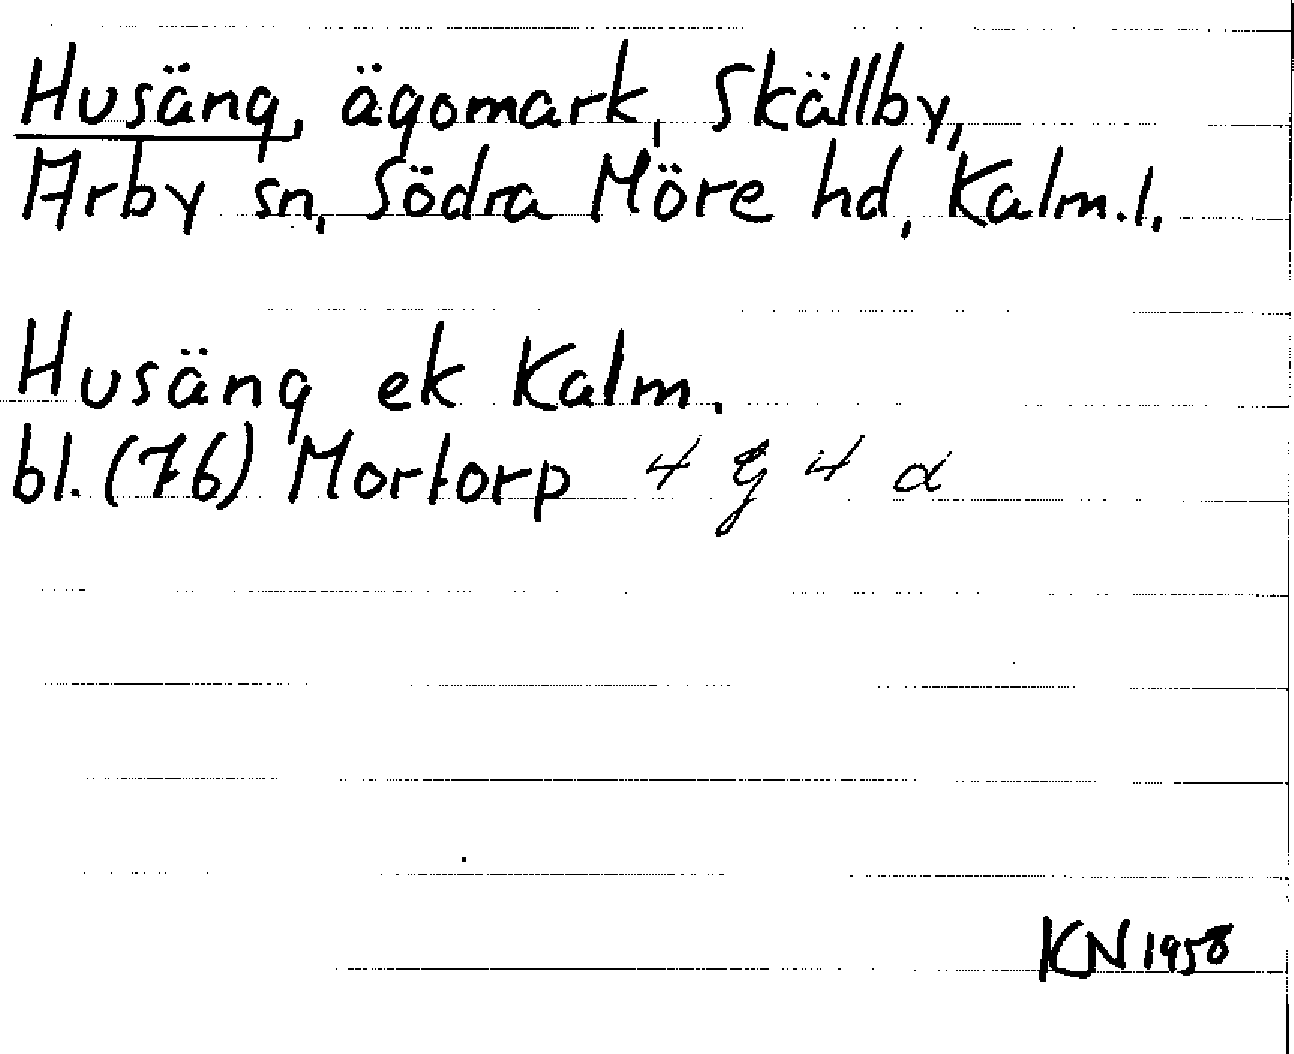 Husäng, ägomark, Skällby,
Arby sn, Södra Möre hd, Kalm.l.
Husäng ek Kalm.
bl. (76) Mortorp 4 G 4 d
KN 1958